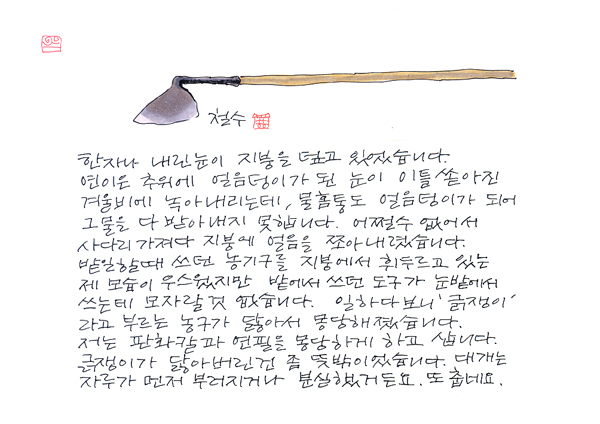 철수
한자나 내린눈이 지붕을 덮고 있었습니다.
연이은 추위에 얼음덩이가 된 눈이 이틀 쏟아진
겨울비에 녹아내리는데, 물홈통도 얼음덩이가 되어
그물을 다 받아내지 못합니다. 어쩔수 없어서
사다리 가져다 지붕에 얼음을 쪼아내렸습니다.
밭일할때 쓰던 농기구를 지붕에서 휘두르고 있는
제 모습이 우스웠지만 밭에서 쓰던 도구가 눈밭에서
쓰는데 모자랄것 없습니다. 일하다보니 '긁쟁이'
라고 부르는 농구가 닳아서 몽당해졌습니다.
저는 판화칼과 연필을 몽당하게 하고 삽니다.
긁쟁이가 닳아버린건 좀 뜻밖이었습니다. 대개는
자루가 먼저 부러지거나 분실했거든요. 또 춥네요.